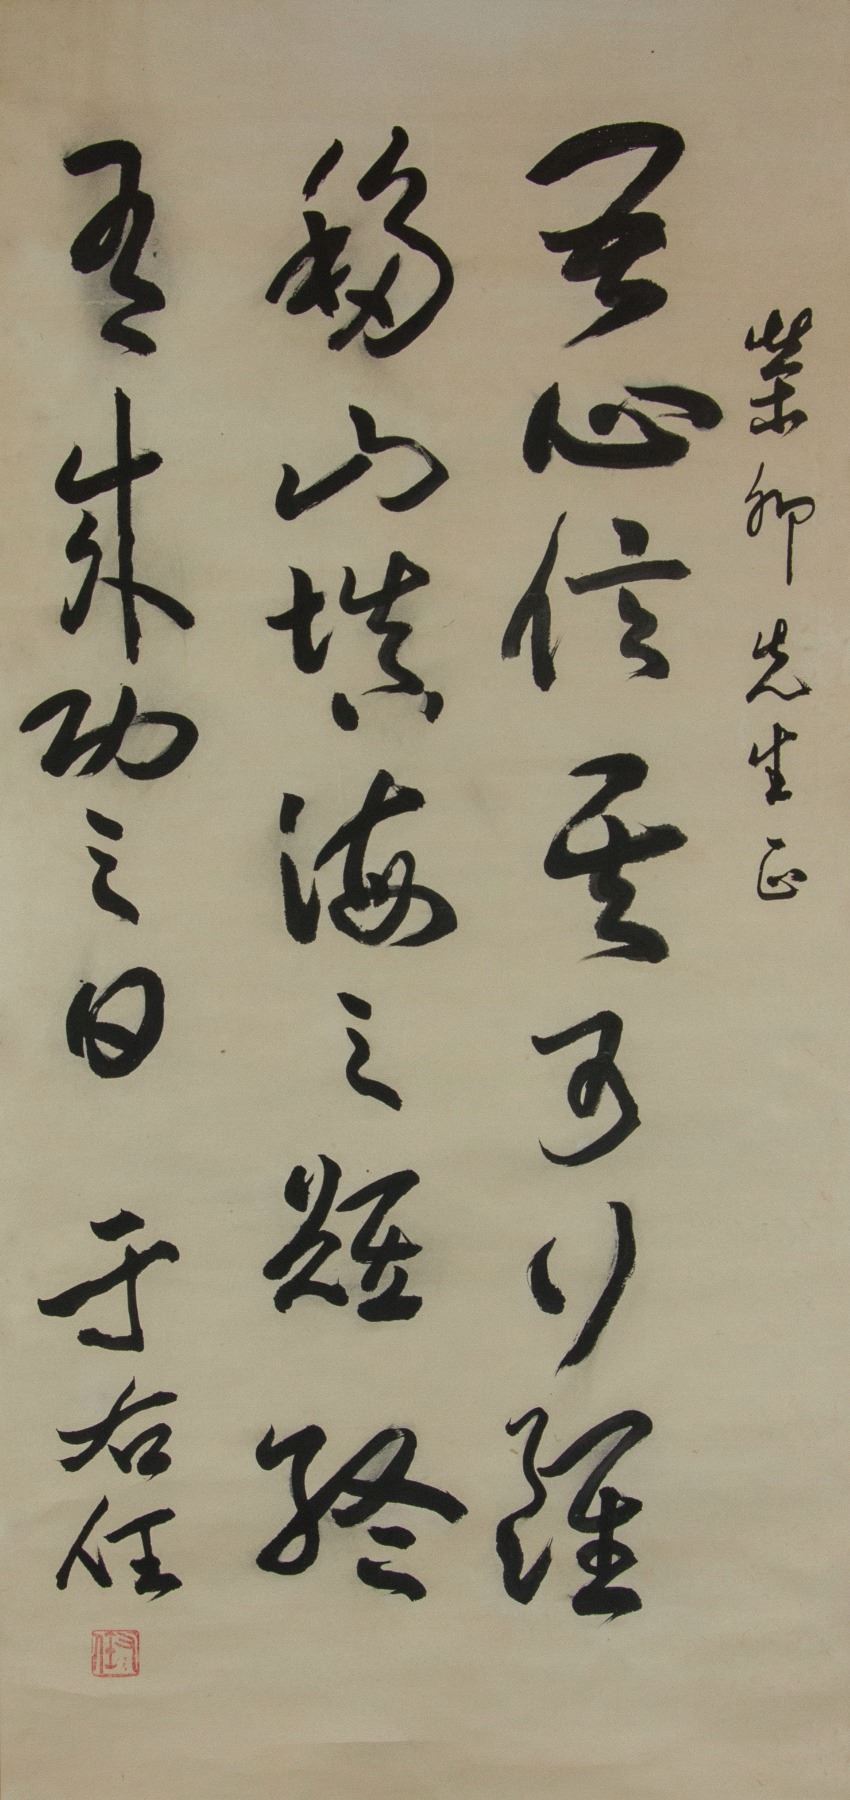 荣卿先生正
吾心信其可行虽
移山填海之难终
有成功之日 于右任
右任